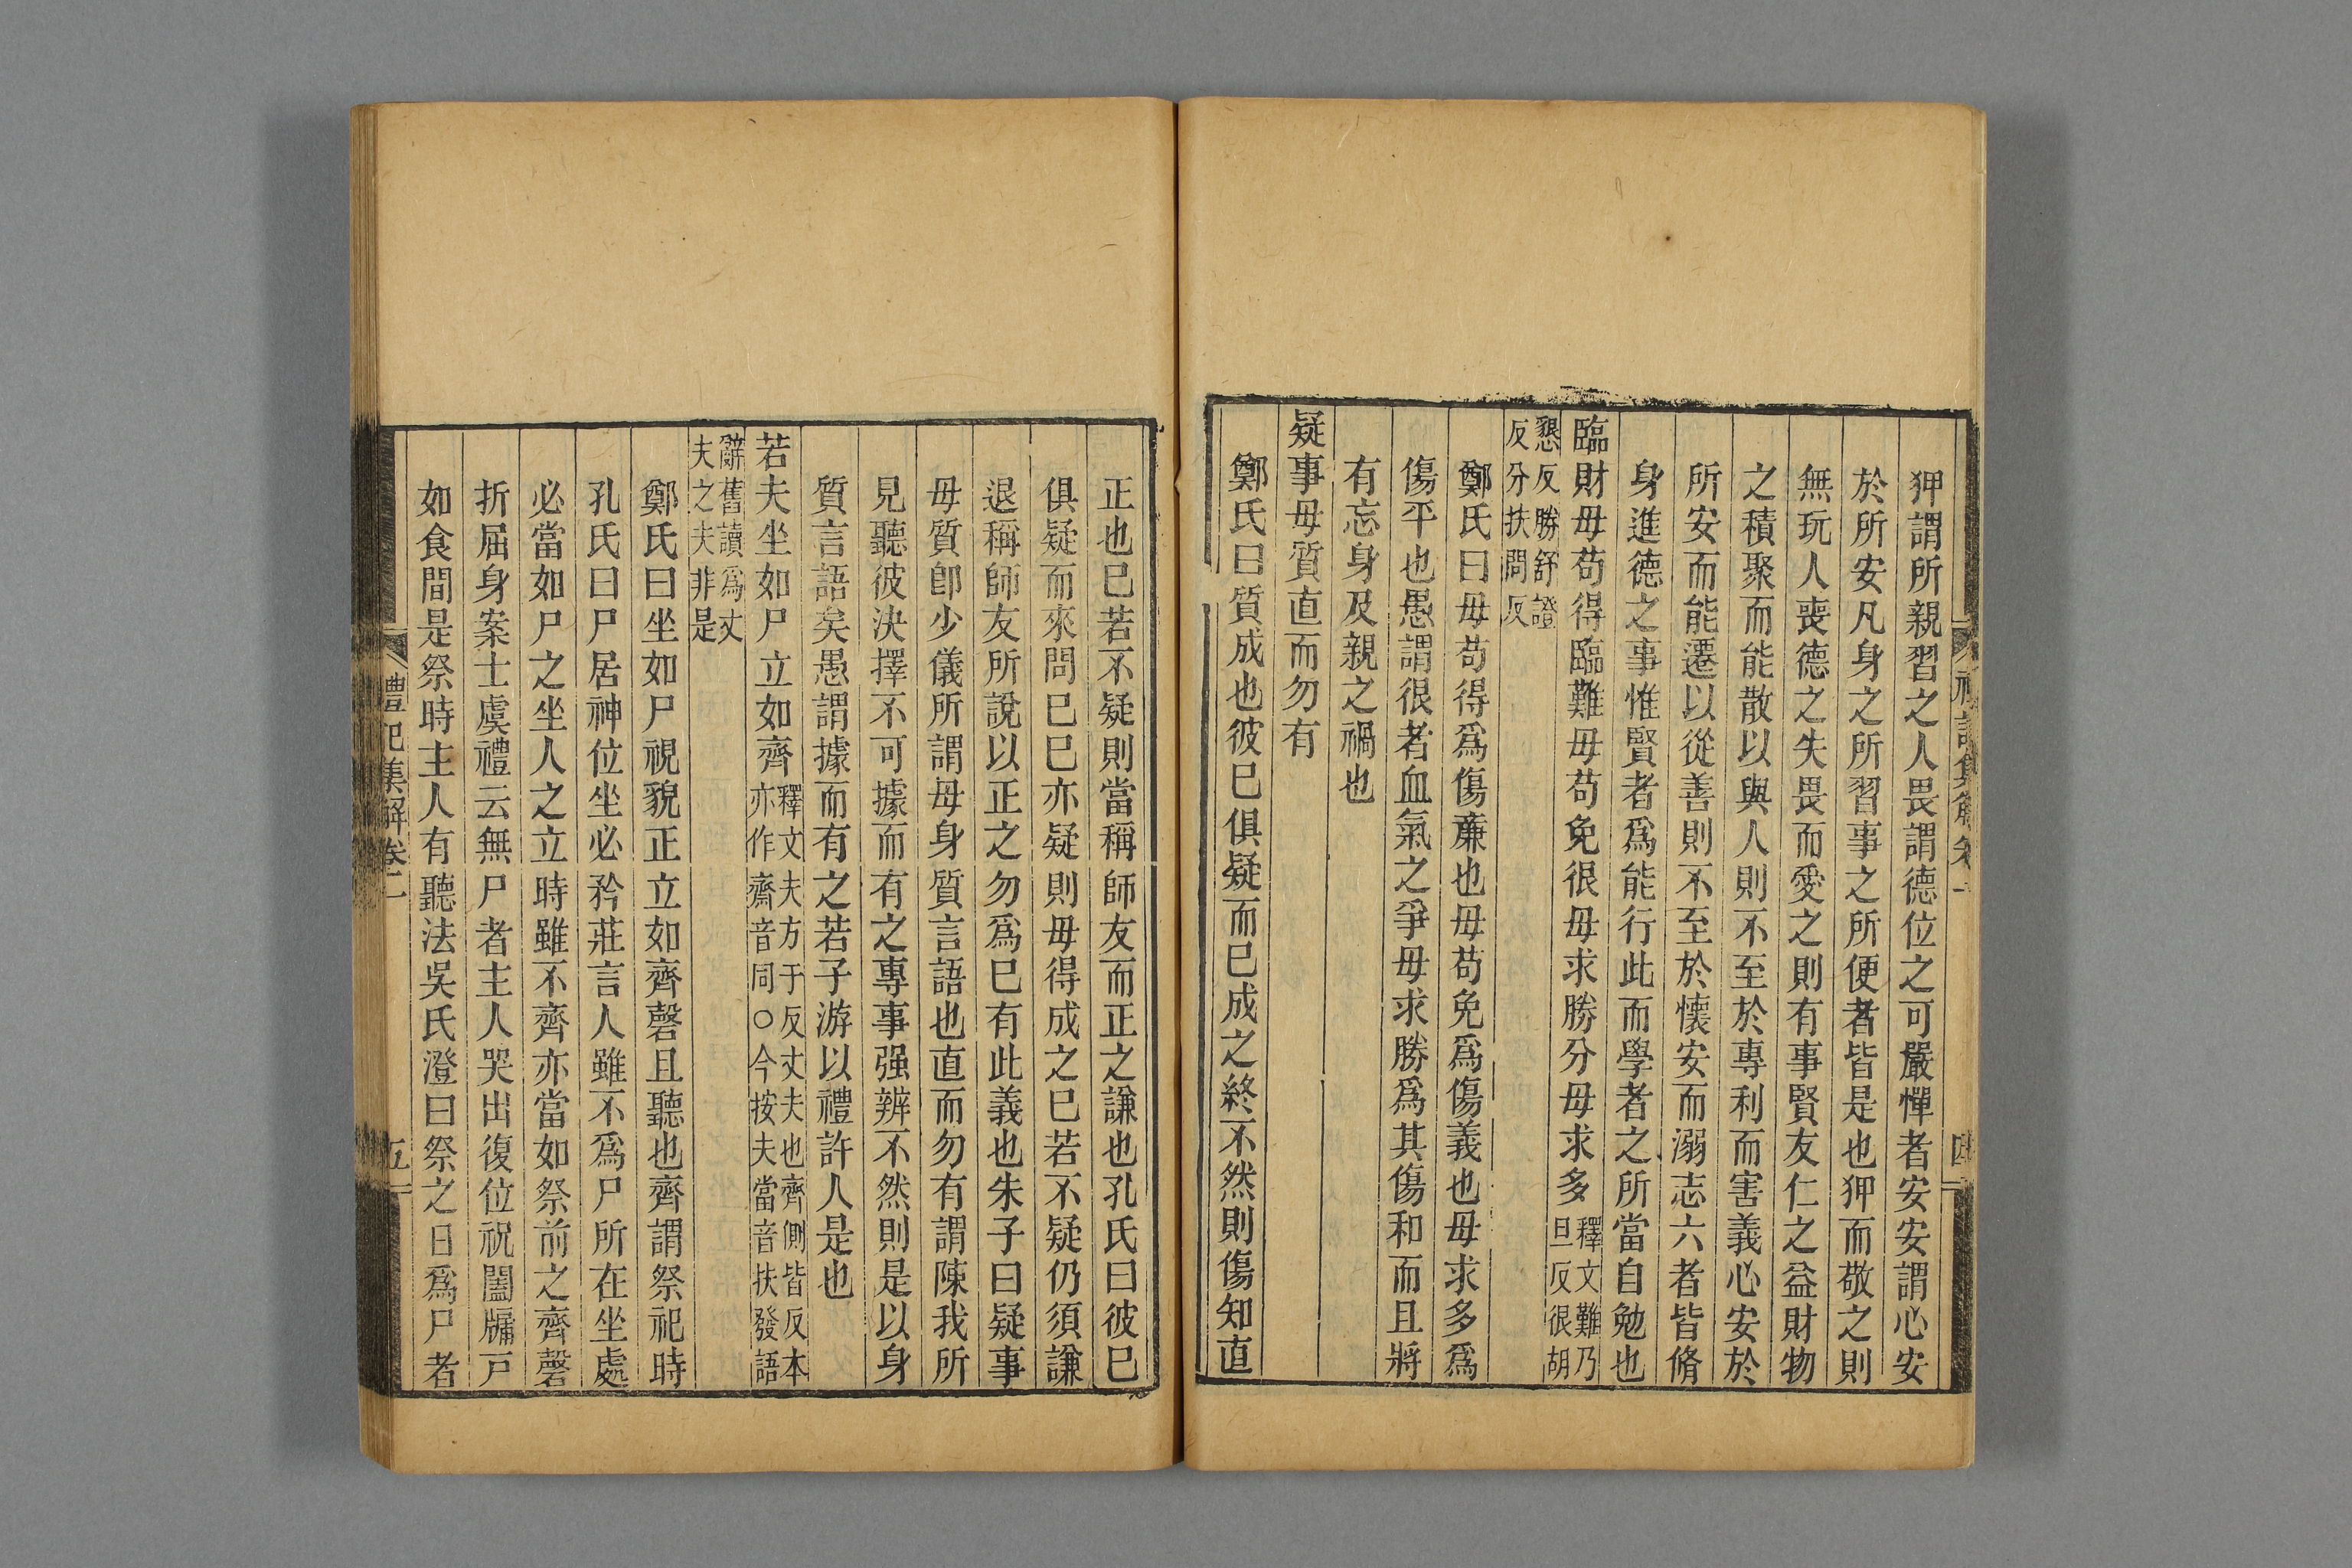 狎謂所親習之人畏謂德位之可嚴憚者安安謂心安
於所安凡身之所習事之所便者皆是也狎而敬之則
無玩人喪德之失畏而愛之則有事賢友仁之益財物
之積聚而能散以與人則不至於專利而害義心安於
所安而能遷以從善則不至於懷安而溺志六者皆脩
身進德之事惟賢者爲能行此而學者之所當自勉也
臨財毋苟得臨難毋苟免很毋求勝分毋求多釋文難乃
旦反很胡
懇反勝舒證
反分扶問反
鄭氏曰毋苟得爲傷廉也毋苟免爲傷義也毋求多爲
傷平也愚謂很者血氣之爭毋求勝爲其傷和而且將
有忘身及親之禍也
疑事毋質直而勿有
鄭氏曰質成也彼巳俱疑而巳成之終不然則傷知直
禮記集解卷二
四
正也巳若不疑則當稱師友而正之謙也孔氏曰彼巳
俱疑而來問巳巳亦疑則毋得成之巳若不疑仍須謙
退稱師友所說以正之勿爲巳有此義也朱子曰疑事
毋質卽少儀所謂毋身質言語也直而勿有謂陳我所
見聽彼決擇不可據而有之專事强辨不然則是以身
質言語矣愚謂據而有之若子游以禮許人是也
若夫坐如尸立如齊釋文夫方于反丈夫也齊側皆反本
亦作齋音同○今按夫當音扶發語
辭舊讀爲丈
夫之夫非是
鄭氏曰坐如尸視貌正立如齊磬且聽也齊謂祭祀時
孔氏曰尸居神位坐必矜莊言人雖不爲尸所在坐處
必當如尸之坐人之立時雖不齊亦當如祭前之齊磬
折屈身案士虞禮云無尸者主人哭出復位祝闔牖戸
如食間是祭時主人有聽法吳氏澄曰祭之日爲尸者
禮記集解卷二
五